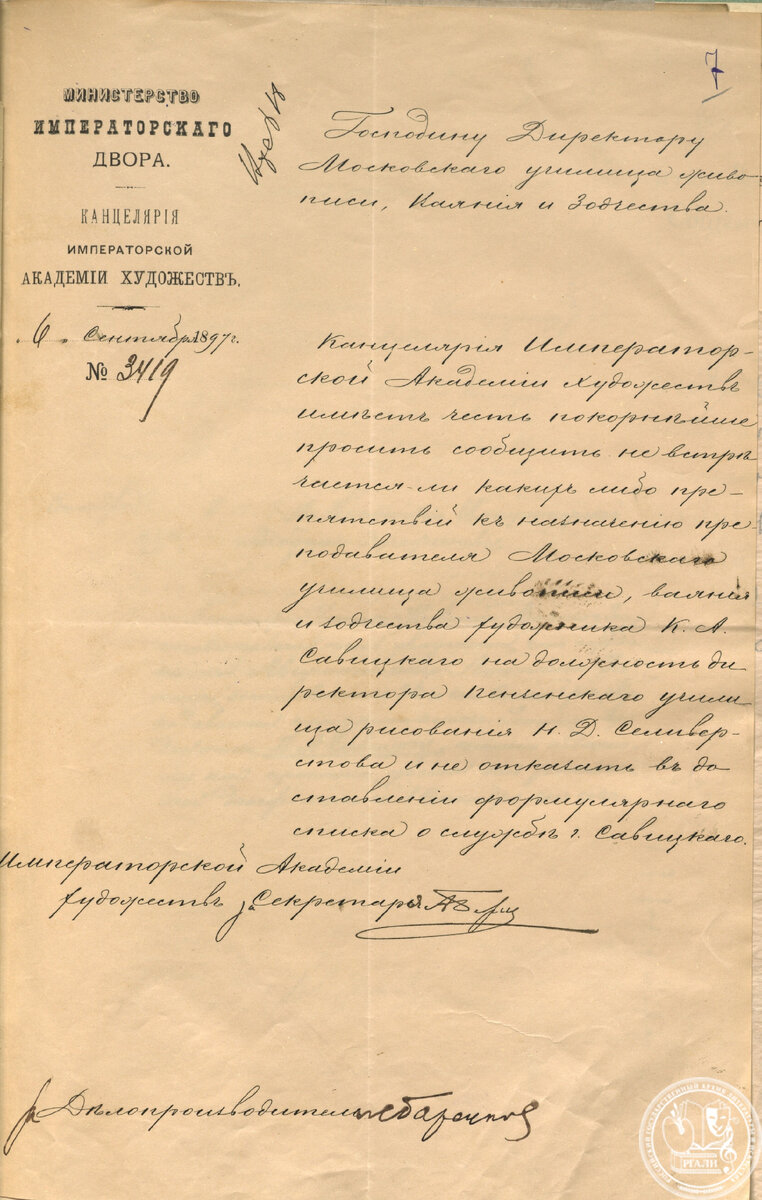 МИНИСТЕРСТВО
ИМПЕРАТОРСКАГО
ДВОРА.
КАНЦЕЛЯРІЯ
ИМПЕРАТОРСКОЙ
АКАДЕМІИ ХУДОЖЕСТВЪ.
6 Сентября 1897 г.
№ 3419
7
Господину Директору
Московскаго училища живо-
писи, Ваянія и Зодчества.
Канцелярія Император-
ской Академіи Художествъ
имѣетъ честь покорнѣйше
просить сообщить не встрѣ-
чается-ли какихъ либо пре-
пятствій къ назначенію пре-
подавателя Московскаго
училища живописи, ваянія
и зодчества художника К. А.
Савицкаго на должность ди
ректора Пензенскаго учили-
ща рисованія Н. Д. Селивер-
стова и не отказать въ до
ставленіи формулярнаго
списка о службѣ г. Савицкаго.
Императорской Академіи
Художествъ За Секретаря
За Дѣлопроизводитель
РГАЛИ